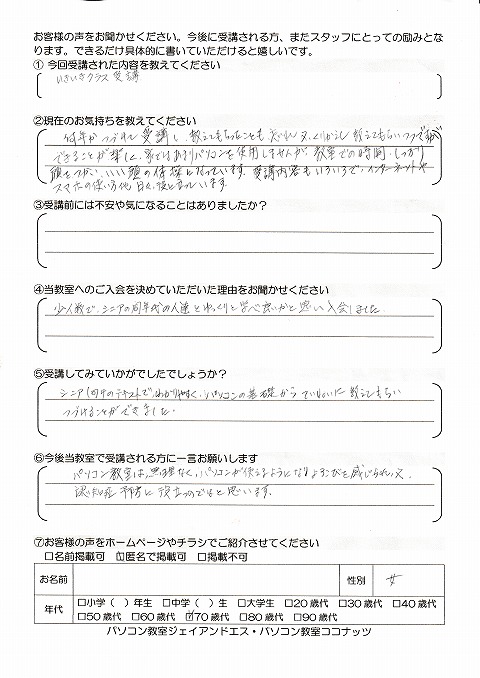 お客様の声をお聞かせください。今後に受講される方、またスタッフにとっての励みとな
ります。できるだけ具体的に書いていただけると嬉しいです。
① 今回受講された内容を教えてください
いきいきクラス受講
②現在のお気持ちを教えてください
何年かつづけて受講し、教えてもらったことも忘れ 又、くりかえし教えてもらいつづける
できることが楽しく、家ではあまりパソコンを使用しませんが、教室での時間、しっかり
頭をつかい、いい頭の体操になっています。受講内容もいろいろで、インターネットや
スマホの使い方他 日々、役に立っています。
③受講前には不安や気になることはありましたか？
④当教室へのご入会を決めていただいた理由をお聞かせください
少人数で、シニアの同年代の人達とゆっくりと学べ良いかと思い入会しました。
⑤受講してみていかがでしたでしょうか？
シニア向けのテキストで、わかり易く、パソコンの基礎からていねいに教えてもらい
つづけることができました。
⑥今後当教室で受講される方に一言お願いします
パソコン教室は、無理なく、パソコンが使えるようになりよろこびを感じられ、又、
認知症予防に役立つのではと思います。
⑦お客様の声をホームページやチラシでご紹介させてください
□名前掲載可 ☑匿名で掲載可 □掲載不可
お名前 性別 女
年代 □小学（ ）年生 □中学（ ）生 □大学生 □20歳代 □30歳代 □40歳代
□50歳代 □60歳代 ☑70歳代 □80歳代 □90歳代
パソコン教室ジェイアンドエス・パソコン教室ココナッツ